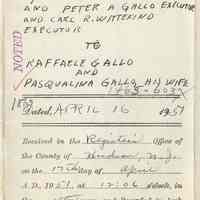 AND PETER A GALLO EXECUTOR
AND CARL R. WITTEKIND
EXECUTOR
TO
NOTED
RAFFAELE GALLO
AND
PASQUALINA GALLO, HIS WIFE
Dated, APRIL 16 1951
Received in the Register's Office of
the County of Hudson, N.J.
on the 17th day of April
A.D. 1951, at 12:06 o'clock, in